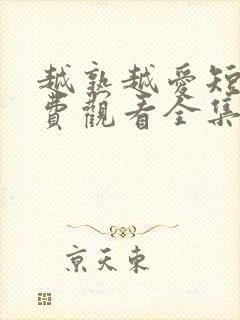 越熟越愛短
費觀看全集
京天東